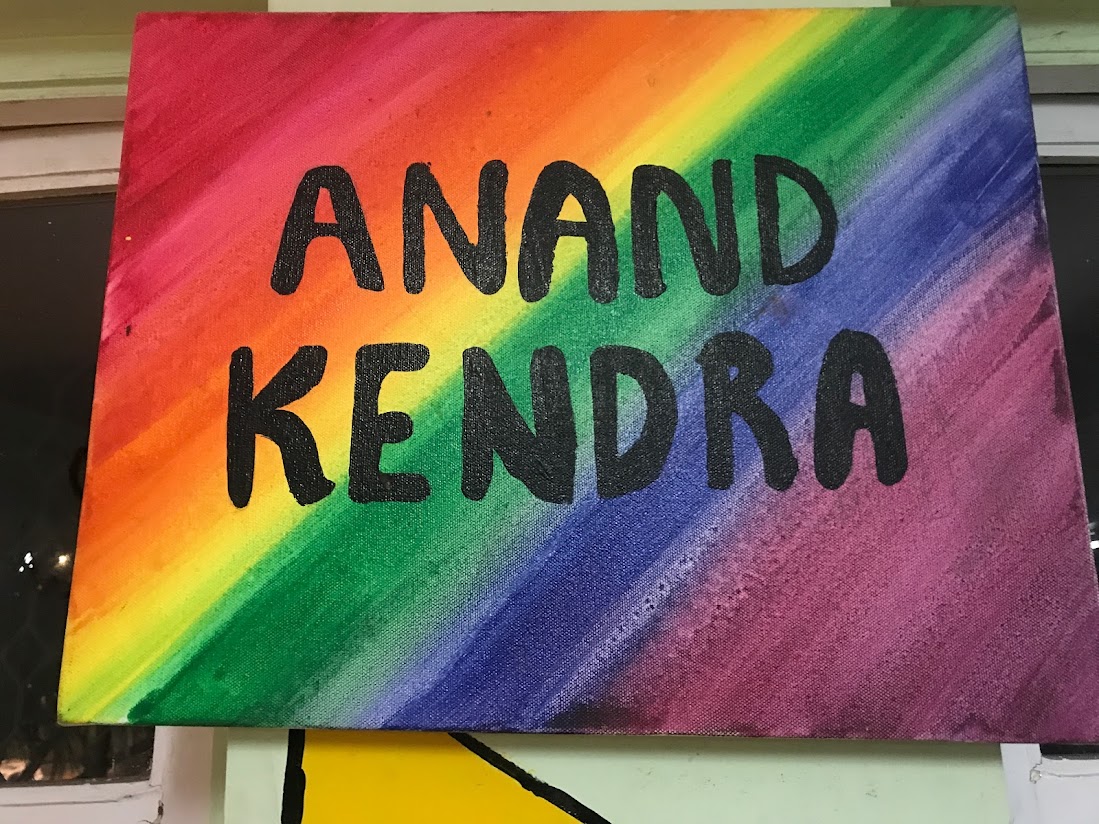 ANAND
KENDRA